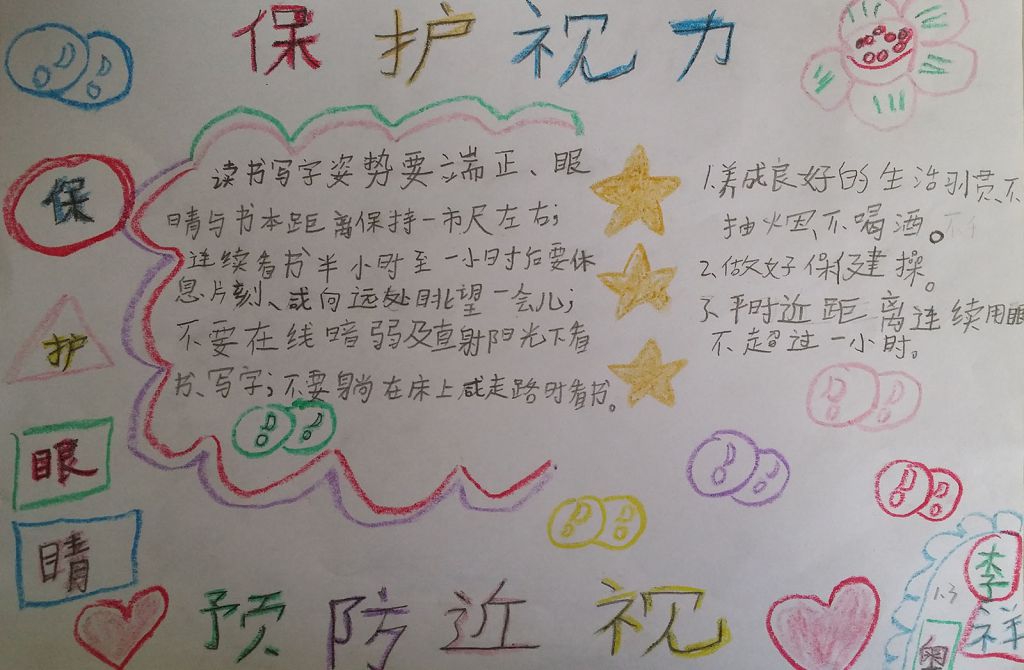 保护视力
保
护
眼
睛
读书写字姿势要端正、眼
睛与书本距离保持一市尺左右;
连续看书半小时至一小时后要休
息片刻、或向远处眺望一会儿;
不要在线暗弱及直射阳光下看
书、写字;不要躺在床上或走路时看书。
1.养成良好的生活习惯、不
抽烟、不喝酒。
2.做好保健操。
3.平时近距离连续用眼
不超过一小时。
预防近视
1.3
李
祥